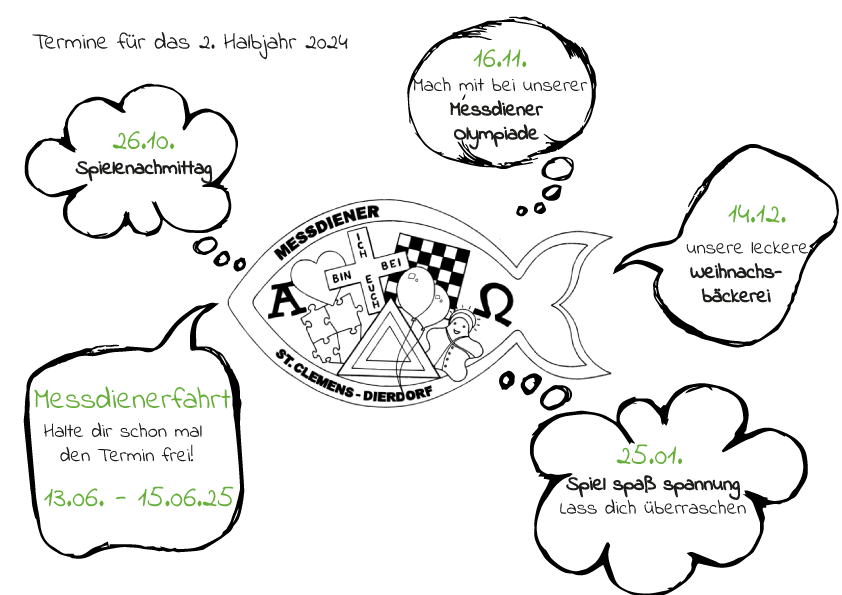 Termine für das 2. Halbjahr 2024
16.11.
Mach mit bei unserer
Messdiener
Olympiade
26.10.
Spielenachmittag
14.12.
unsere leckere
Weihnachs-
bäckerei
MESSDINER
ICH
BIN BEI
EUCH
Α Ω
ST. CLEMENS - DIERDORF
Messdienerfahrt
Halte dir schon mal
den Termin frei!
13.06. - 15.06.25
25.01.
Spiel spaß spannung
Lass dich überraschen